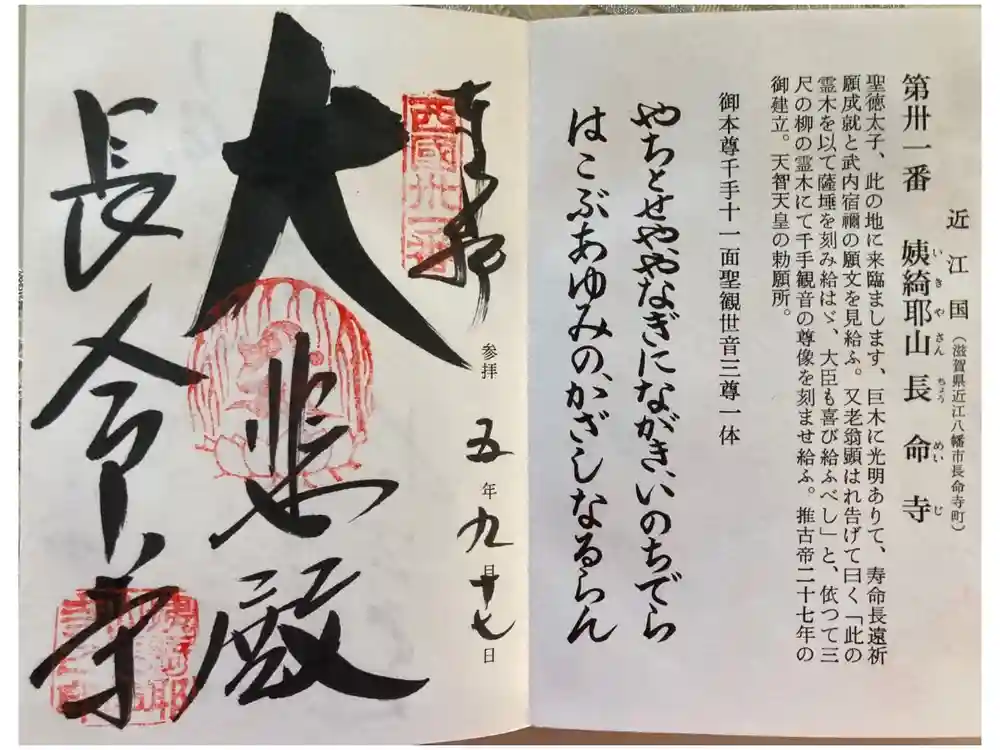 近江国(滋賀県近江八幡市長命寺町)
第卅一番 姨綺耶山長命寺
いきやさんちょうめいじ
聖徳太子、此の地に来臨まします、巨木に光明ありて、寿命長遠祈
願成就と武内宿禰の願文を見給ふ。又老翁顕はれ告げて曰く「此の
霊木を以て薩埵を刻み給はゞ、大臣も喜び給ふべし」と、依つて三
尺の柳の霊木にて千手観音の尊像を刻ませ給ふ。推古帝二十七年の
御建立。天智天皇の勅願所。
御本尊千手十一面聖観世音三尊一体
やちとせややなぎにながきいのちでら
はこぶあゆみの、かざしなるらん
奉拝
西國卅一番
参拝 五年九月十七日
大悲殿
長命寺